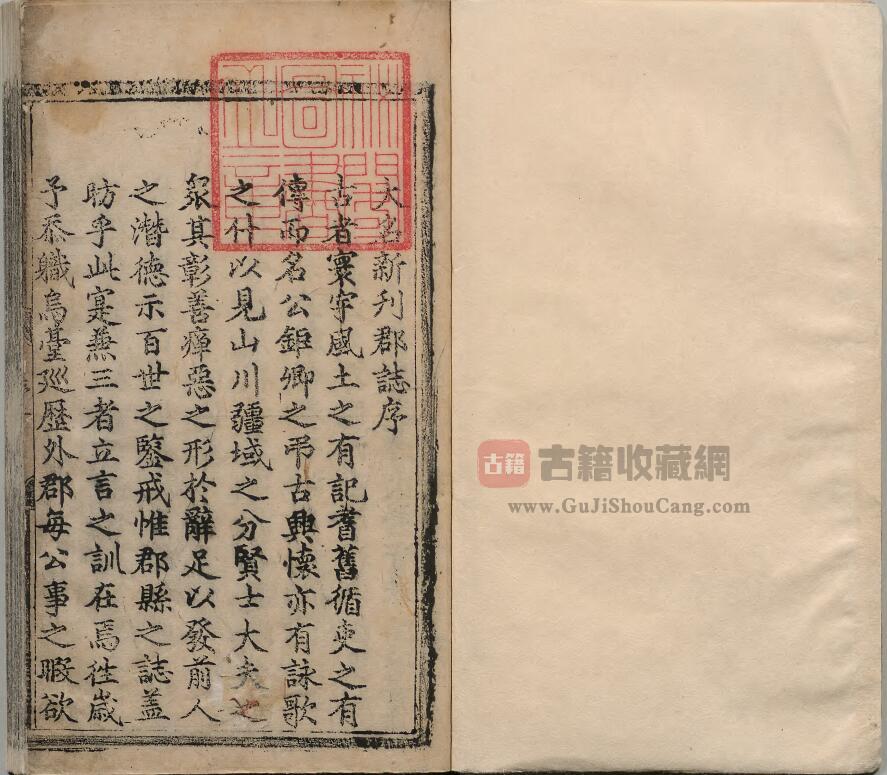 大名新刋郡誌序
古者寰宇風土之有記耆舊循吏之有
傳而名公鉅卿之弔古興懷亦有詠歌
之什以見山川疆域之分賢士大夫之
衆其彰善癉惡之形於辭足以發前人
之潛德示百世之鑒戒惟郡縣之誌盖
昉乎此寔兼三者立言之訓在焉徃嵗
予忝職烏臺廵歷外郡每公事之暇欲
古籍
古籍收藏網
www.GuJiShouCang.com